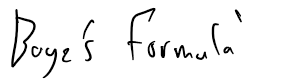 Baye's Formula